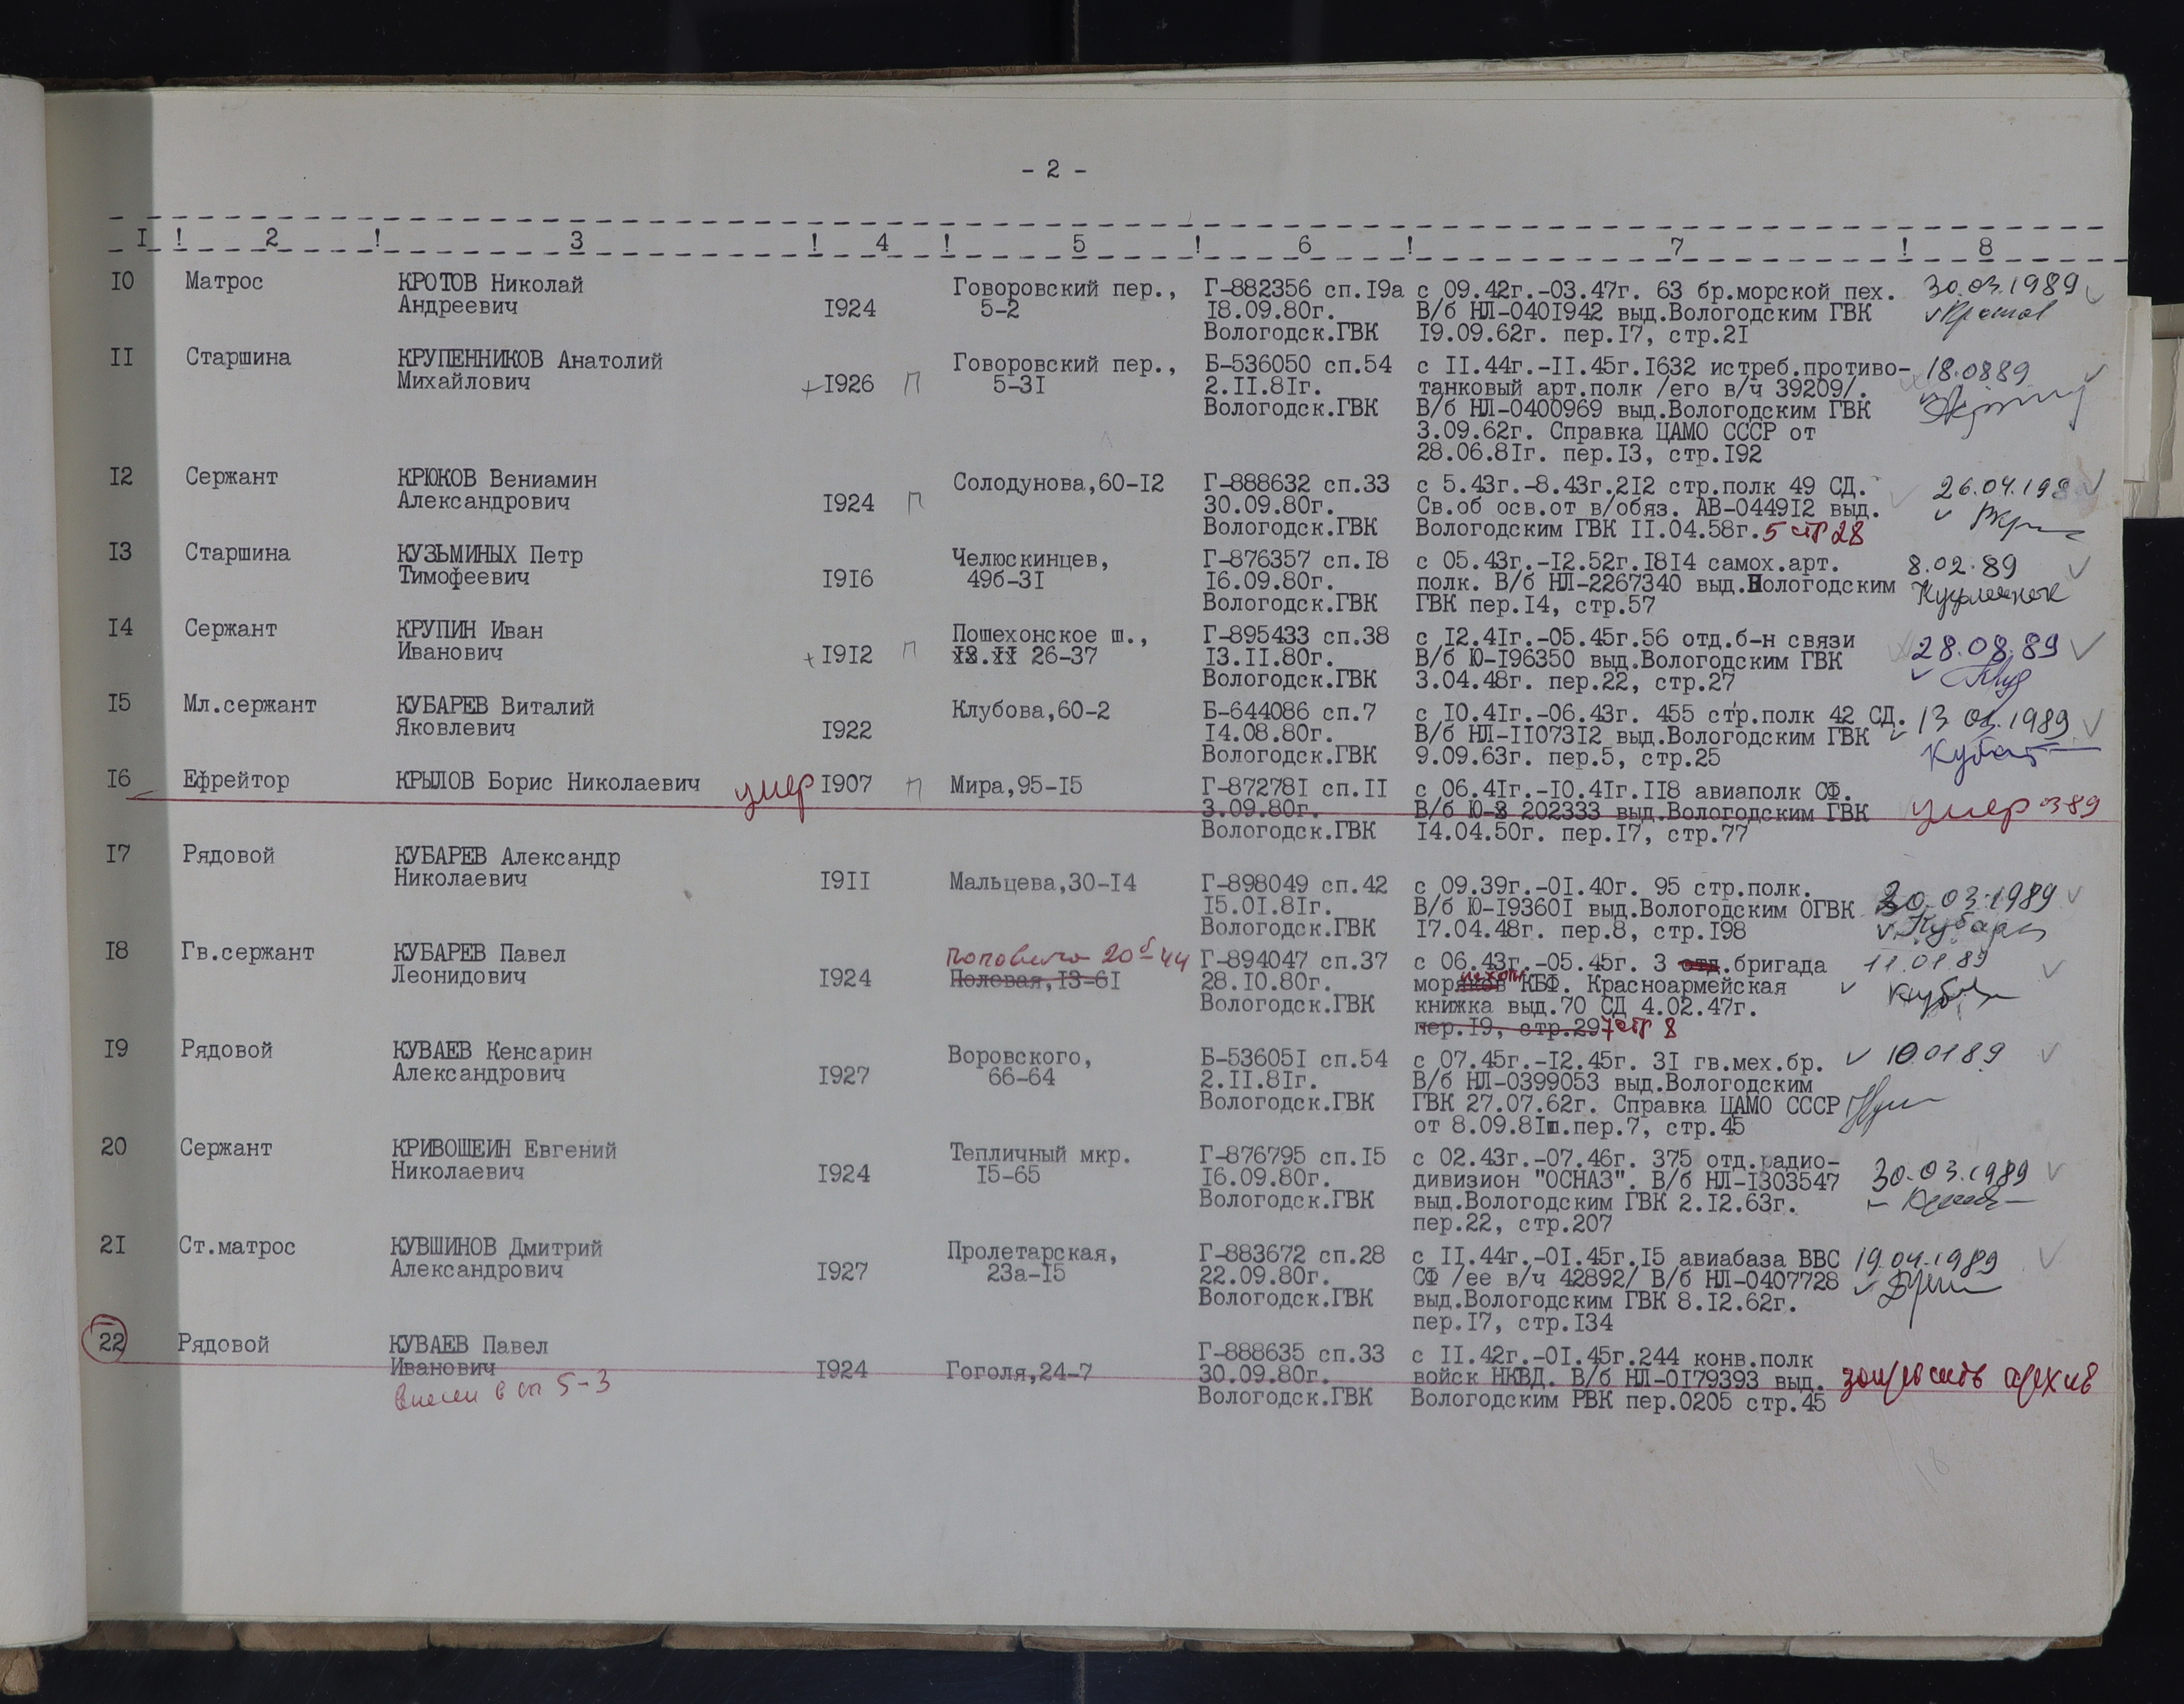 - 2 -
I ! 2 ! 3 ! 4 ! 5 ! 6 ! 7 ! 8
I0 Матрос КРОТОВ Николай Говоровский пер., Г-882356 сп.I9а с 09.42г.-03.47г. 63 бр.морской пех. 30.03.1989
Андреевич I924 5-2 I8.09.80г. В/б НЛ-040I942 выд.Вологодским ГВК
Вологодск.ГВК I9.09.62г. пер.I7, стр.2I
II Старшина КРУПЕННИКОВ Анатолий Говоровский пер., Б-536050 сп.54 с II.44г.-II.45г.I632 истреб.противо- 18.0889
Михайлович +I926 П 5-3I 2.II.8Iг. танковый арт.полк /его в/ч 39209/.
Вологодск.ГВК В/б НЛ-0400969 выд.Вологодским ГВК
3.09.62г. Справка ЦАМО СССР от
28.06.8Iг. пер.I3, стр.I92
I2 Сержант КРЮКОВ Вениамин Солодунова,60-I2 Г-888632 сп.33 с 5.43г.-8.43г.2I2 стр.полк 49 СД. 26.04.198
Александрович I924 П 30.09.80г. Св.об осв.от в/обяз. АВ-0449I2 выд.
Вологодск.ГВК Вологодским ГВК II.04.58г. 5 стр 28
I3 Старшина КУЗЬМИНЫХ Петр Челюскинцев, Г-876357 сп.I8 с 05.43г.-I2.52г.I8I4 самох.арт. 8.02.89
Тимофеевич I9I6 49б-3I I6.09.80г. полк. В/б НЛ-2267340 выд.Вологодским
Вологодск.ГВК ГВК пер.I4, стр.57
I4 Сержант КРУПИН Иван Пошехонское ш., Г-895433 сп.38 с I2.4Iг.-05.45г.56 отд.б-н связи 28.08.89
Иванович +I9I2 П 26-37 I3.II.80г. В/б Ю-I96350 выд.Вологодским ГВК
Вологодск.ГВК 3.04.48г. пер.22, стр.27
I5 Мл.сержант КУБАРЕВ Виталий Клубова,60-2 Б-644086 сп.7 с I0.4Iг.-06.43г. 455 стр.полк 42 СД. 13 03.1989
Яковлевич I922 I4.08.80г. В/б НЛ-II073I2 выд.Вологодским ГВК
Вологодск.ГВК 9.09.63г. пер.5, стр.25
I6 Ефрейтор КРЫЛОВ Борис Николаевич умер I907 П Мира,95-I5 Г-87278I сп.II с 06.4Iг.-I0.4Iг.II8 авиаполк СФ. умер 389
3.09.80г. В/б Ю-202333 выд.Вологодским ГВК
Вологодск.ГВК I4.04.50г. пер.I7, стр.77
I7 Рядовой КУБАРЕВ Александр
Николаевич I9II Мальцева,30-I4 Г-898049 сп.42 с 09.39г.-0I.40г. 95 стр.полк. 30.03.1989
I5.0I.8Iг. В/б Ю-I9360I выд.Вологодским ОГВК
Вологодск.ГВК I7.04.48г. пер.8, стр.I98
I8 Гв.сержант КУБАРЕВ Павел Поповича 20б-44 Г-894047 сп.37 с 06.43г.-05.45г. 3 отд.бригада 11.01.89
Леонидович I924 Полевая,I3-6I 28.I0.80г. моряков пехоты КБФ. Красноармейская
Вологодск.ГВК книжка выд.70 СД 4.02.47г.
пер.I9, стр.29 7 стр 8
I9 Рядовой КУВАЕВ Кенсарин Воровского, Б-53605I сп.54 с 07.45г.-I2.45г. 3I гв.мех.бр. 10.0189
Александрович I927 66-64 2.II.8Iг. В/б НЛ-0399053 выд.Вологодским
Вологодск.ГВК ГВК 27.07.62г. Справка ЦАМО СССР
от 8.09.8Iш.пер.7, стр.45
20 Сержант КРИВОШЕИН Евгений Тепличный мкр. Г-876795 сп.I5 с 02.43г.-07.46г. 375 отд.радио-
Николаевич I924 I5-65 I6.09.80г. дивизион "ОСНАЗ". В/б НЛ-I303547 30.03.1989
Вологодск.ГВК выд.Вологодским ГВК 2.I2.63г.
пер.22, стр.207
2I Ст.матрос КУВШИНОВ Дмитрий Пролетарская, Г-883672 сп.28 с II.44г.-0I.45г.I5 авиабаза ВВС 19.04.1989
Александрович I927 23а-I5 22.09.80г. СФ /ее в/ч 42892/ В/б НЛ-0407728
Вологодск.ГВК выд.Вологодским ГВК 8.I2.62г.
пер.I7, стр.I34
22 Рядовой КУВАЕВ Павел Г-888635 сп.33 с II.42г.-0I.45г.244 конв.полк
Иванович I924 Гоголя,24-7 30.09.80г. войск НКВД. В/б НЛ-0I79393 выд. запросить архив
внесен в сп 5-3 Вологодск.ГВК Вологодским РВК пер.0205 стр.45